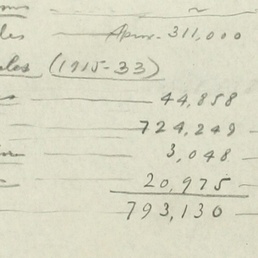 Aprox. 311,000
(1915-33)
44,858
724,249
3,048
20,975
793,130